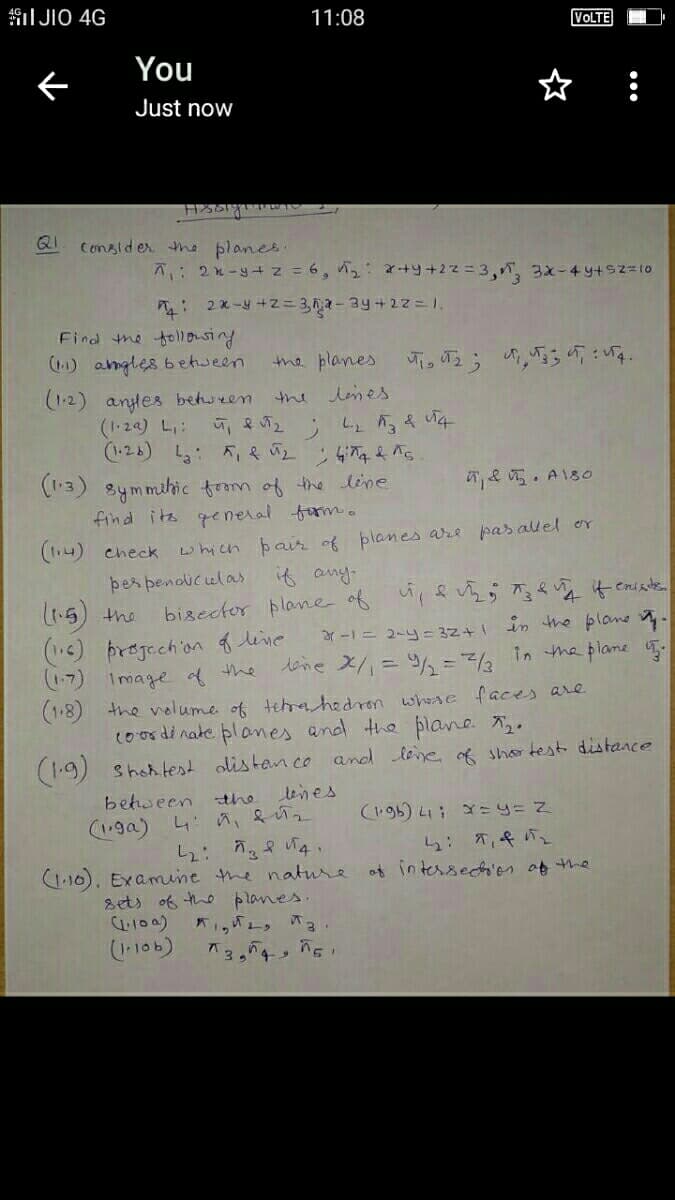 JIO 4G 11:08 VoLTE
You
Just now
Q1 Consider the planes.
π₁: 2x-y+z=6, π₂: x+y+2z=3, π₃ 3x-4y+5z=10
π₄: 2x-y+z=3, π₅ x-3y+2z=1.
Find the following
(1.1) angles between the planes π₁, π₂; π₁, π₃; π₁; π₄.
(1.2) angles between the lines
(1.2a) L₁: π₁ & π₂ ; L₂ π₃ & π₄
(1.2b) L₃: π₁ & π₂ ; L₄: π₄ & π₅.
(1.3) symmetric form of the line π₁ & π₂. Also
find its general form.
(1.4) check which pair of planes are parallel or
perpendicular if any.
(1.5) the bisector plane of π₁ & π₂; π₃ & π₄ if exists.
(1.6) projection of line x-1=2-y=3z+1 in the plane π₁.
(1.7) Image of the line x/1=y/2=z/3 in the plane π₃.
(1.8) the volume of tetrahedron whose faces are
coordinate planes and the plane π₂.
(1.9) shortest distance and line of shortest distance
between the lines
(1.9a) L₁: π₁ & π₂ (1.9b) L₁: x=y=z
L₂: π₃ & π₄. L₂: π₁ & π₂
(1.10). Examine the nature of intersection of the
sets of the planes.
(1.10a) π₁, π₂, π₃.
(1.10b) π₃, π₄, π₅.